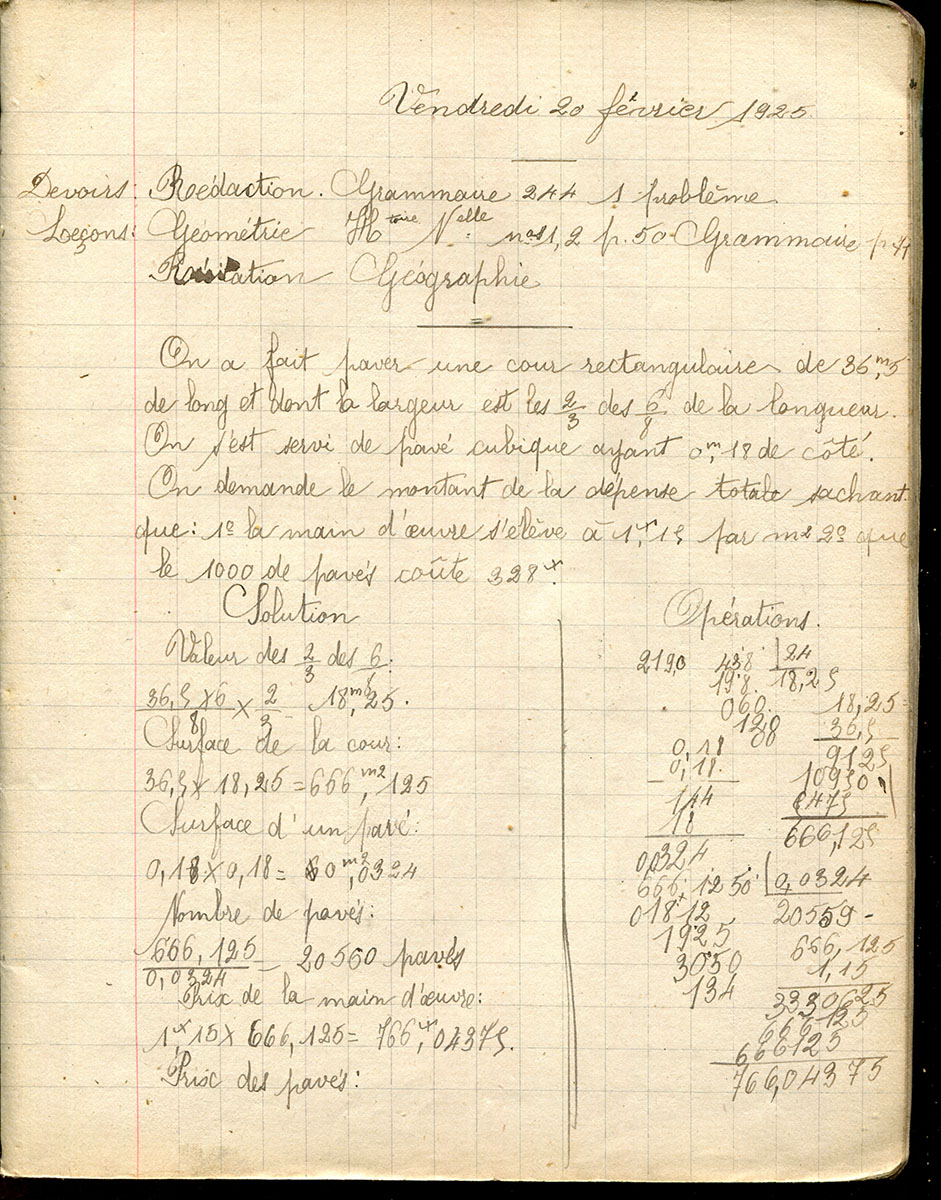 Vendredi 20 février 1925.
Devoirs: Rédaction. Grammaire 244 1 problème
Leçons: Géométrie Htoire Nelle nos 1, 2 p. 50 Grammaire p.
Récitation Géographie
On a fait paver une cour rectangulaire de 36m,5
de long et dont la largeur est les 2/3 des 6/8 de la longueur.
On s'est servi de pavé cubique ayant 0m,18 de côté.
On demande le montant de la dépense totale sachant
que: 1º la main d'œuvre s'élève à 1f,15 par m2 2º que
le 1000 de pavés coûte 328f.
Solution
Valeur des 2/3 des 6/8:
36,5 × 6
8
× 2/3 18m,25.
Surface de la cour:
36,5 × 18,25 = 666m2,125
Surface d'un pavé:
0,18 × 0,18 = 0m2,0324
Nombre de pavés:
666,125
0,0324
= 20560 pavés
Prix de la main d'œuvre:
1f,15 × 666,125 = 766f,04375.
Prix des pavés:
Opérations.
219,0 438 24
198 18,25
060
120
18,25
36,5
9125
10950
5475
666,125
0,18
0,18
144
18
0,0324
666,1250 0,0324
01812 20559
1925
3050
134
666,125
1,15
3330625
666125
666125
766,04375